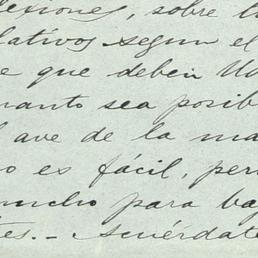 lexiones, sobre lo
lativos segun el
e que deben Ud
uanto sea posib
l ave de la ma
o es fácil, per
mucho para ba
tes.- Acuérdate